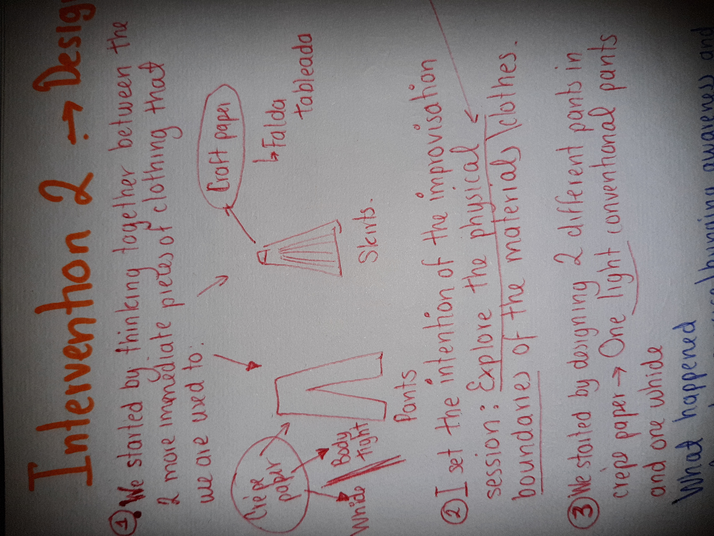 Intervention 2 → Design
① We started by thinking together between the
2 more immediate pieces of clothing that
we are used to:
Crêpe
paper
Whide
Body
tight
Pants
Craft paper
↳ Falda
tableada
Skirts.
② I set the intention of the improvisation
session: Explore the physical
boundaries of the materials/clothes.
③ We started by designing 2 different pants in
crêpe paper → One light conventional pants
and one whide
What happened
awareness and